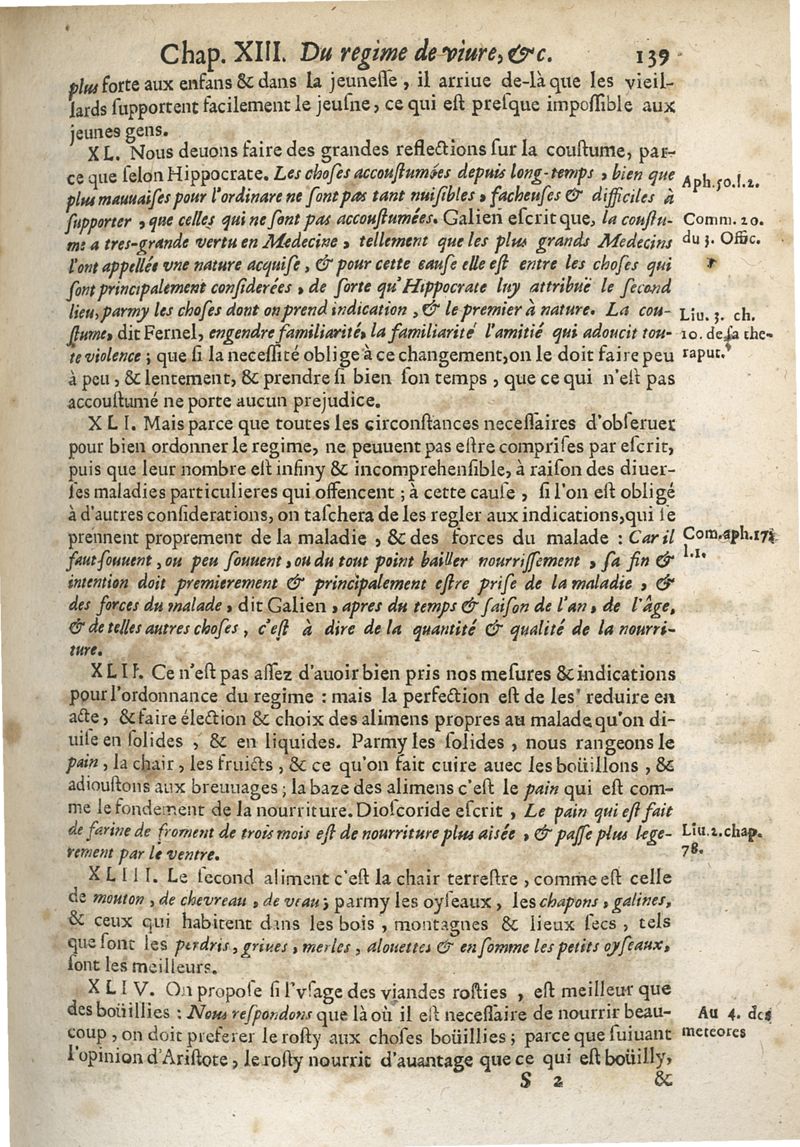 Chap. XIII. Du regime de viure, &c. 139
plus forte aux enfans & dans la jeunesse, il arriue de-là que les vieil-
lards supportent facilement le jeusne, ce qui est presque impossible aux
jeunes gens.
XL. Nous deuons faire des grandes reflections sur la coustume, par-
ce que selon Hippocrate. Les choses accoustumées depuis long-temps, bien que
Aph. 50. l. 2.
plus mauuaises pour l'ordinare ne sont pas tant nuisibles, facheuses & difficiles à
supporter, que celles qui ne sont pas accoustumées. Galien escrit que, la coustu-
Comm. 20.
me a tres-grande vertu en Medecine, tellement que les plus grands Medecins
du 3. Offic.
l'ont appellée vne nature acquise, & pour cette cause elle est entre les choses qui
sont principalement considerées, de sorte qu'Hippocrate luy attribuë le second
lieu, parmy les choses dont on prend indication, & le premier à nature. La cou-
Liu. 3. ch.
stume, dit Fernel, engendre familiarité, la familiarité l'amitié qui adoucit tou-
10. de sa the-
te violence; que si la necessité oblige à ce changement, on le doit faire peu
raput.
à peu, & lentement, & prendre si bien son temps, que ce qui n'est pas
accoustumé ne porte aucun prejudice.
XLI. Mais parce que toutes les circonstances necessaires d'obseruer
pour bien ordonner le regime, ne peuuent pas estre comprises par escrit,
puis que leur nombre est infiny & incomprehensible, à raison des diuer-
ses maladies particulieres qui offencent; à cette cause, si l'on est obligé
à d'autres considerations, on taschera de les regler aux indications, qui se
prennent proprement de la maladie, & des forces du malade: Car il
Com. aph. 17.
faut souuent, ou peu souuent, ou du tout point bailler nourrissement, sa fin &
l. 1.
intention doit premierement & principalement estre prise de la maladie, &
des forces du malade, dit Galien, apres du temps & saison de l'an, de l'âge,
& de telles autres choses, c'est à dire de la quantité & qualité de la nourri-
ture.
XLII. Ce n'est pas assez d'auoir bien pris nos mesures & indications
pour l'ordonnance du regime: mais la perfection est de les reduire en
acte, & faire élection & choix des alimens propres au malade, qu'on di-
uise en solides, & en liquides. Parmy les solides, nous rangeons le
pain, la chair, les fruicts, & ce qu'on fait cuire auec les boüillons, &
adioustons aux breuuages; la baze des alimens c'est le pain qui est com-
me le fondement de la nourriture. Dioscoride escrit, Le pain qui est fait
de farine de froment de trois mois est de nourriture plus aisée, & passe plus lege-
Liu. 2. chap.
rement par le ventre.
78.
XLIII. Le second aliment c'est la chair terrestre, comme est celle
de mouton, de chevreau, de veau; parmy les oyseaux, les chapons, galines,
& ceux qui habitent dans les bois, montagnes & lieux secs, tels
que sont les perdris, griues, merles, alouettes & en somme les petits oyseaux,
sont les meilleurs.
XLIV. On propose si l'vsage des viandes rosties, est meilleur que
des boüillies: Nous respondons que là où il est necessaire de nourrir beau-
Au 4. des
coup, on doit preferer le rosty aux choses boüillies; parce que suiuant
meteores
l'opinion d'Aristote, le rosty nourrit d'auantage que ce qui est boüilly,
S 2 &